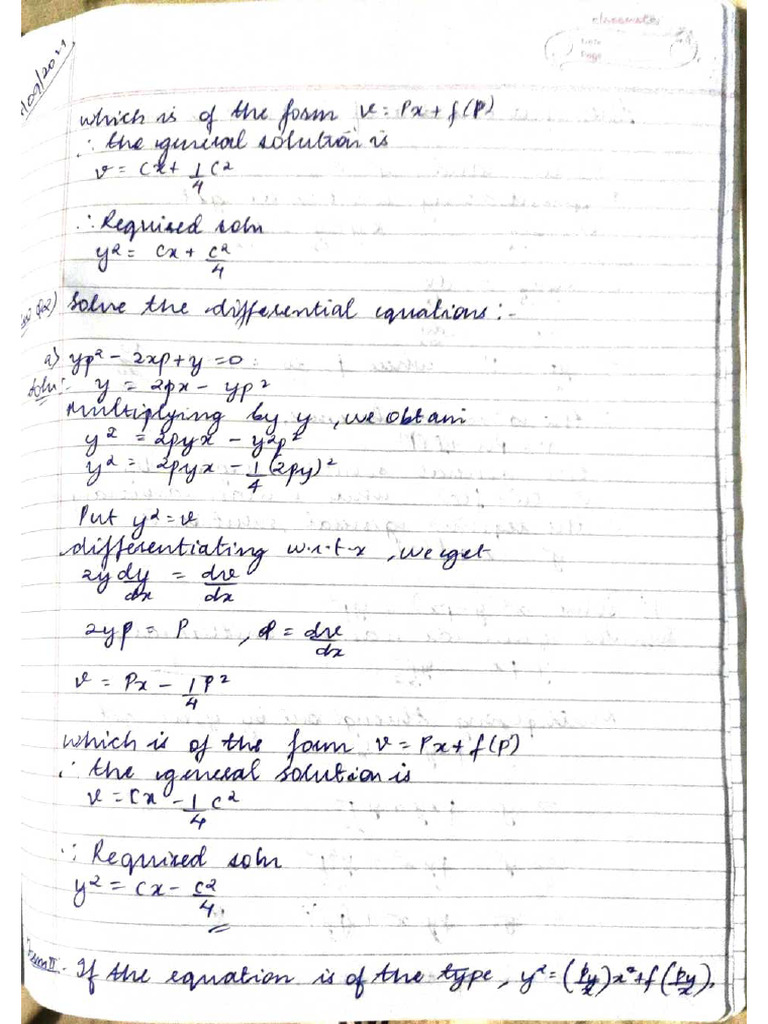 classmate
Date
Page
/09/2021
which is of the form v = Px + f(P)
∴ the general solution is
v = cx + 1/4 c²
∴ Required soln
y² = cx + c²/4
Q2) Solve the differential equations :-
a) yp² - 2xp + y = 0
Soln:- y = 2px - yp²
Multiplying by y, we obtain
y² = 2pyx - y²p²
y² = 2pyx - 1/4 (2py)²
Put y² = v
differentiating w.r.t x, we get
2y dy/dx = dv/dx
2yp = P , P = dv/dx
v = Px - 1/4 P²
which is of the form v = Px + f(P)
∴ the general solution is
v = cx - 1/4 c²
∴ Required soln
y² = cx - c²/4
Form II. If the equation is of the type, y² = (py/x)x² + f(py/x),